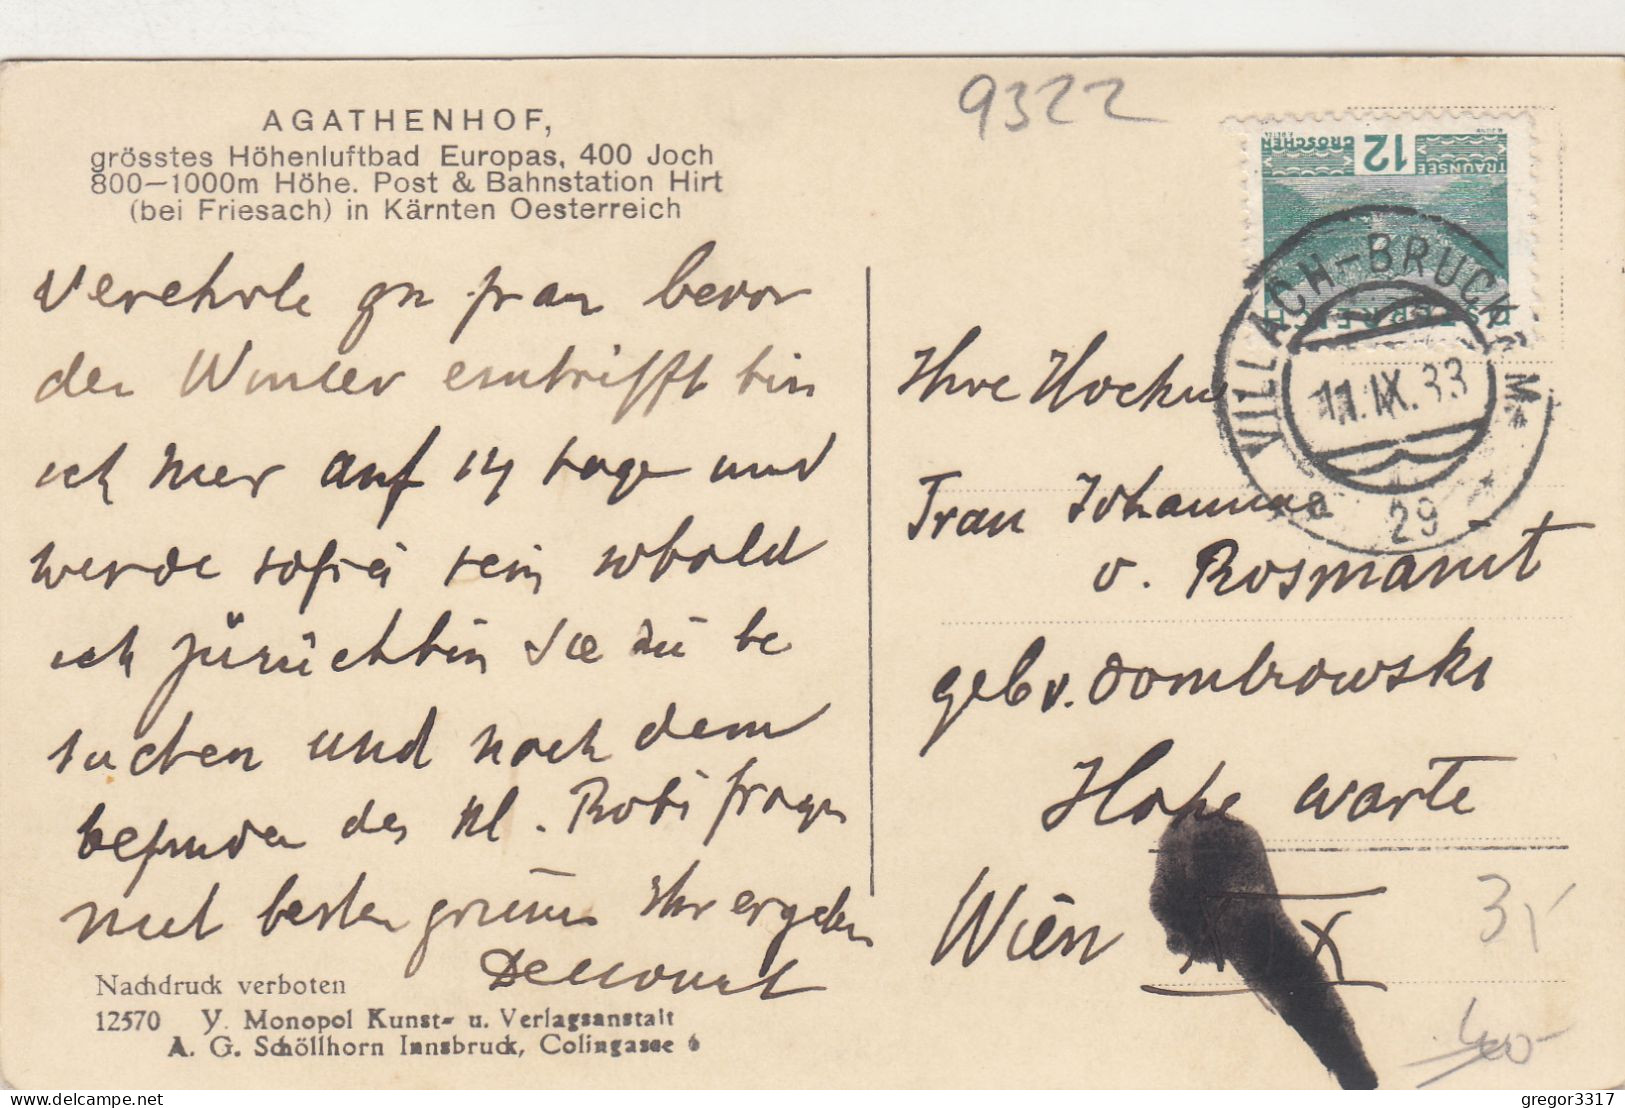 9322
AGATHENHOF,
grösstes Höhenluftbad Europas, 400 Joch
800-1000m Höhe. Post & Bahnstation Hirt
(bei Friesach) in Kärnten Oesterreich
12
GROSCHEN
TRAUNSEE
ÖSTERREICH
VILLACH-BRUCK
11.IX.33
a 29
Verehrte gn frau bevor
der Winter eintrifft bin
ich hier auf 14 tage und
werde sofrei sein sobald
ich zürückbin Sie zu be
suchen und nach dem
befinden des kl. Robi fragen
mit besten grüssen Ihr ergeben
Ihre Hochw
Frau Johanna
v. Rosmanit
geb v. Dombrowski
Hohe warte
Wien
3x
400-
Nachdruck verboten
12570 V. Monopol Kunst- u. Verlagsanstalt
A. G. Schöllhorn Innsbruck, Colingasse 6
delcampe.net
gregor3317